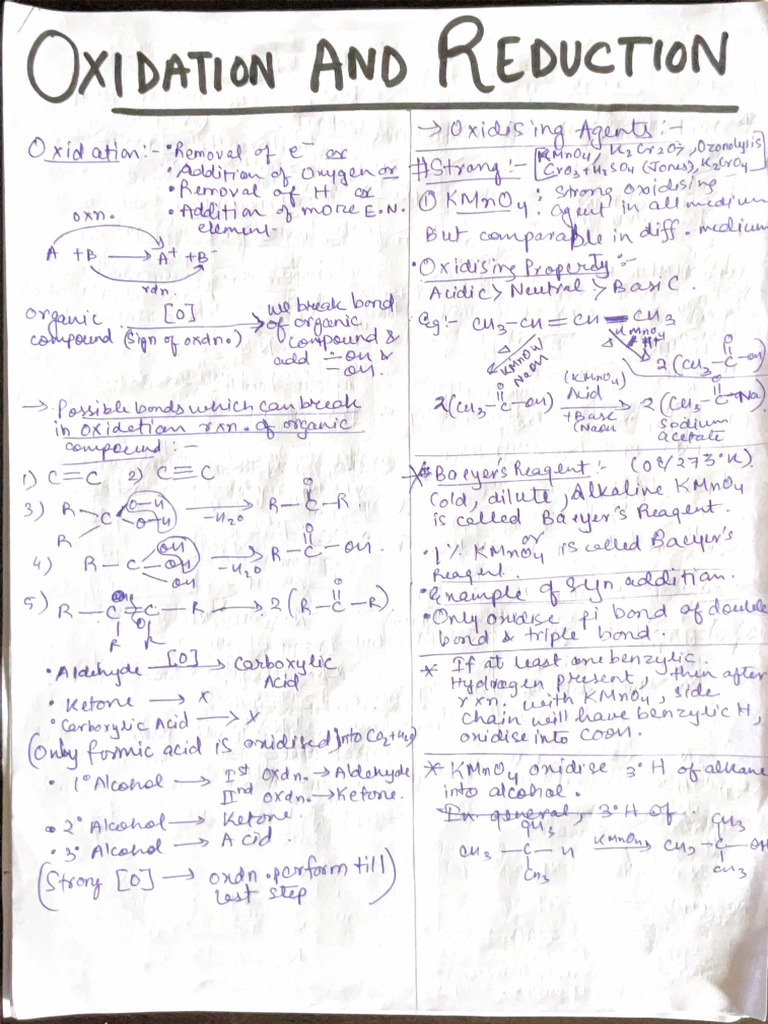 OXIDATION AND REDUCTION
Oxidation:- • Removal of e⁻ or
• Addition of Oxygen or
• Removal of H or
• Addition of more E.N.
element.
oxn.
A + B → A⁺ + B⁻
rdn.
organic
compound
[O]
(sign of oxdn.)
we break bond
of organic
compound &
add -OH &
-OH.
→ Possible bonds which can break
in oxidetian rxn. of organic
compound :-
1) C=C 2) C≡C
3) R
C
O-H
O-H
R
-H₂O
R-C-R
O
4) R-C
OH
OH
OH
-H₂O
R-C-OH.
O
5) R-C=C-R → 2(R-C-R)
R R
O
• Aldehyde [O] → Carboxylic
Acid
• Ketone → X
• Carboxylic Acid → X
(Only formic acid is oxidised into CO₂+H₂O)
• 1° Alcohol → Ist oxdn. → Aldehyde
IInd oxdn. → Ketone.
• 2° Alcohol → Ketone.
• 3° Alcohol → Acid.
(Strong [O] → oxdn. perform till
last step)
→ Oxidising Agents:-
# Strong:- [KMnO₄, K₂Cr₂O₇, Ozonolysis
CrO₃+H₂SO₄ (Jones), K₂CrO₄]
① KMnO₄: Strong oxidising
agent in all medium
But comparable in diff. medium
• Oxidising Property:-
Acidic > Neutral > Basic.
Eg:- CH₃-CH=CH-CH₃
KMnO₄
NaOH
Δ
KMnO₄
H⁺
Δ
2(CH₃-C-OH)
O
2(CH₃-C-OH)
O
(KMnO₄)
Acid
+Base
(NaOH
2(CH₃-C-Na)
O
Sodium
acetate
* Baeyer's Reagent:- (0°/273°K)
Cold, dilute, Alkaline KMnO₄
is called Baeyer's Reagent.
or
• 1% KMnO₄ is called Baeyer's
Reagent.
• Example of syn addition.
• Only oxidise pi bond of double
bond & triple bond.
* If at least one benzylic
Hydrogen present, then after
rxn. with KMnO₄, side
chain will have benzylic H,
oxidise into COOH.
* KMnO₄ oxidise 3°H of alkane
into alcohol.
In general, 3°H of
CH₃
CH₃-C-H
CH₃
KMnO₄
CH₃
CH₃-C-OH
CH₃